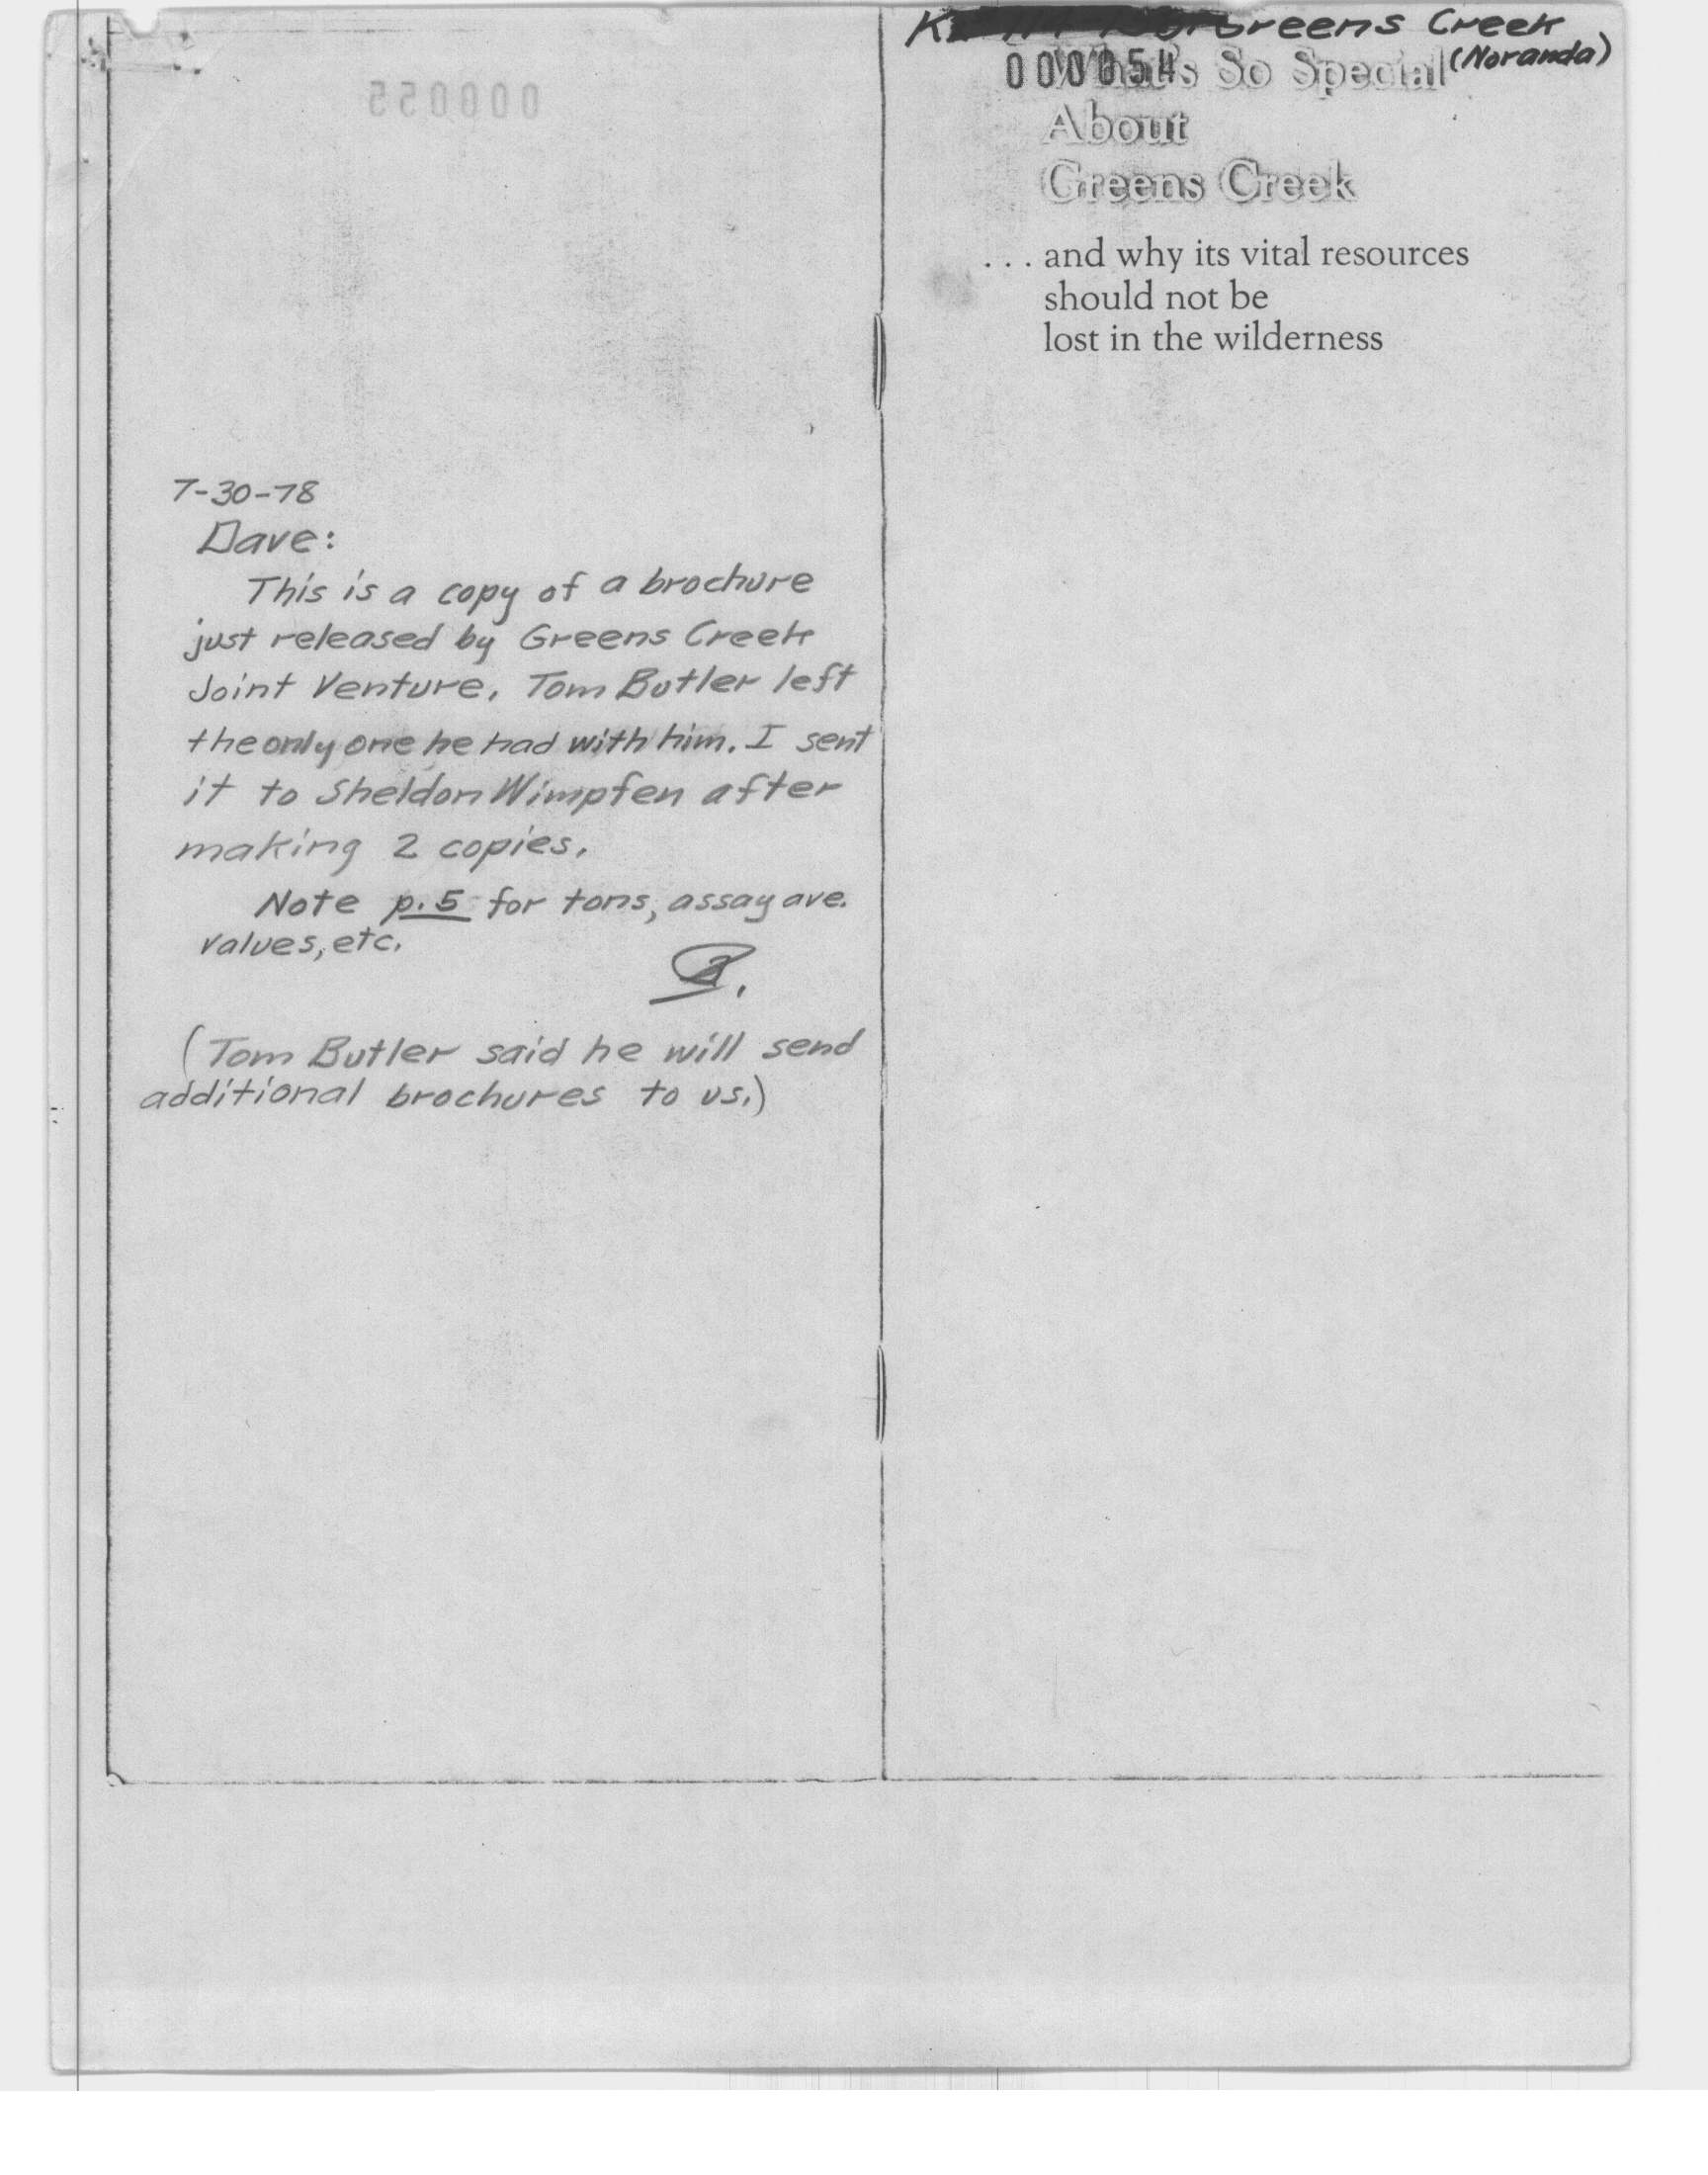 000055
7-30-78
Dave:
This is a copy of a brochure
just released by Greens Creek
Joint Venture. Tom Butler left
the only one he had with him. I sent
it to Sheldon Wimpfen after
making 2 copies.
Note p. 5 for tons, assay ave.
values, etc.
(Tom Butler said he will send
additional brochures to us.)
Greens Creek
(Noranda)
000054
What's So Special
About
Greens Creek
. . . and why its vital resources
should not be
lost in the wilderness